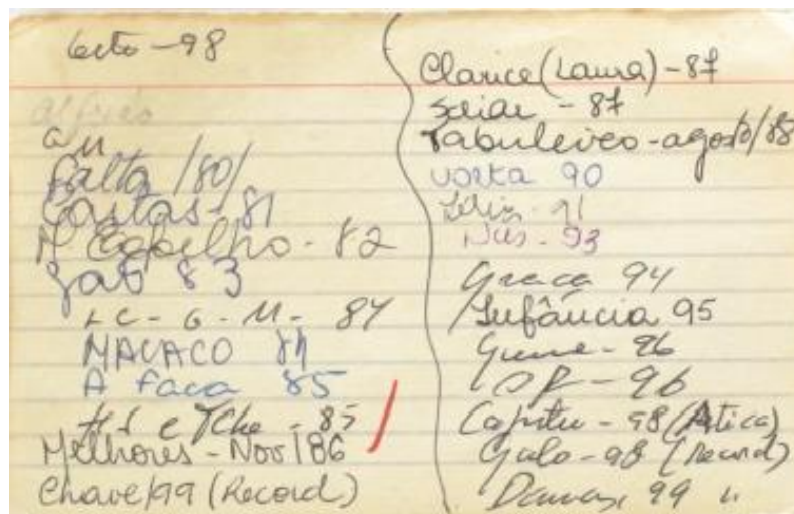 98
Falta /80/
Cartas - 81
M Espelho - 82
83
LC - G - M - 84
MACACO 84
A faca 85
e Tche - 85
Melhores - Nov/86
Chave/99 (Record)
Clarice (Laura) - 87
- 87
Tabuleiro - agosto/88
VORTA 90
Feliz - 91
Nus - 93
Graça 94
Infância 95
- 96
- 96
Capitu - 98 (Ática)
Galo - 98 (Record)
Damas, 99 "